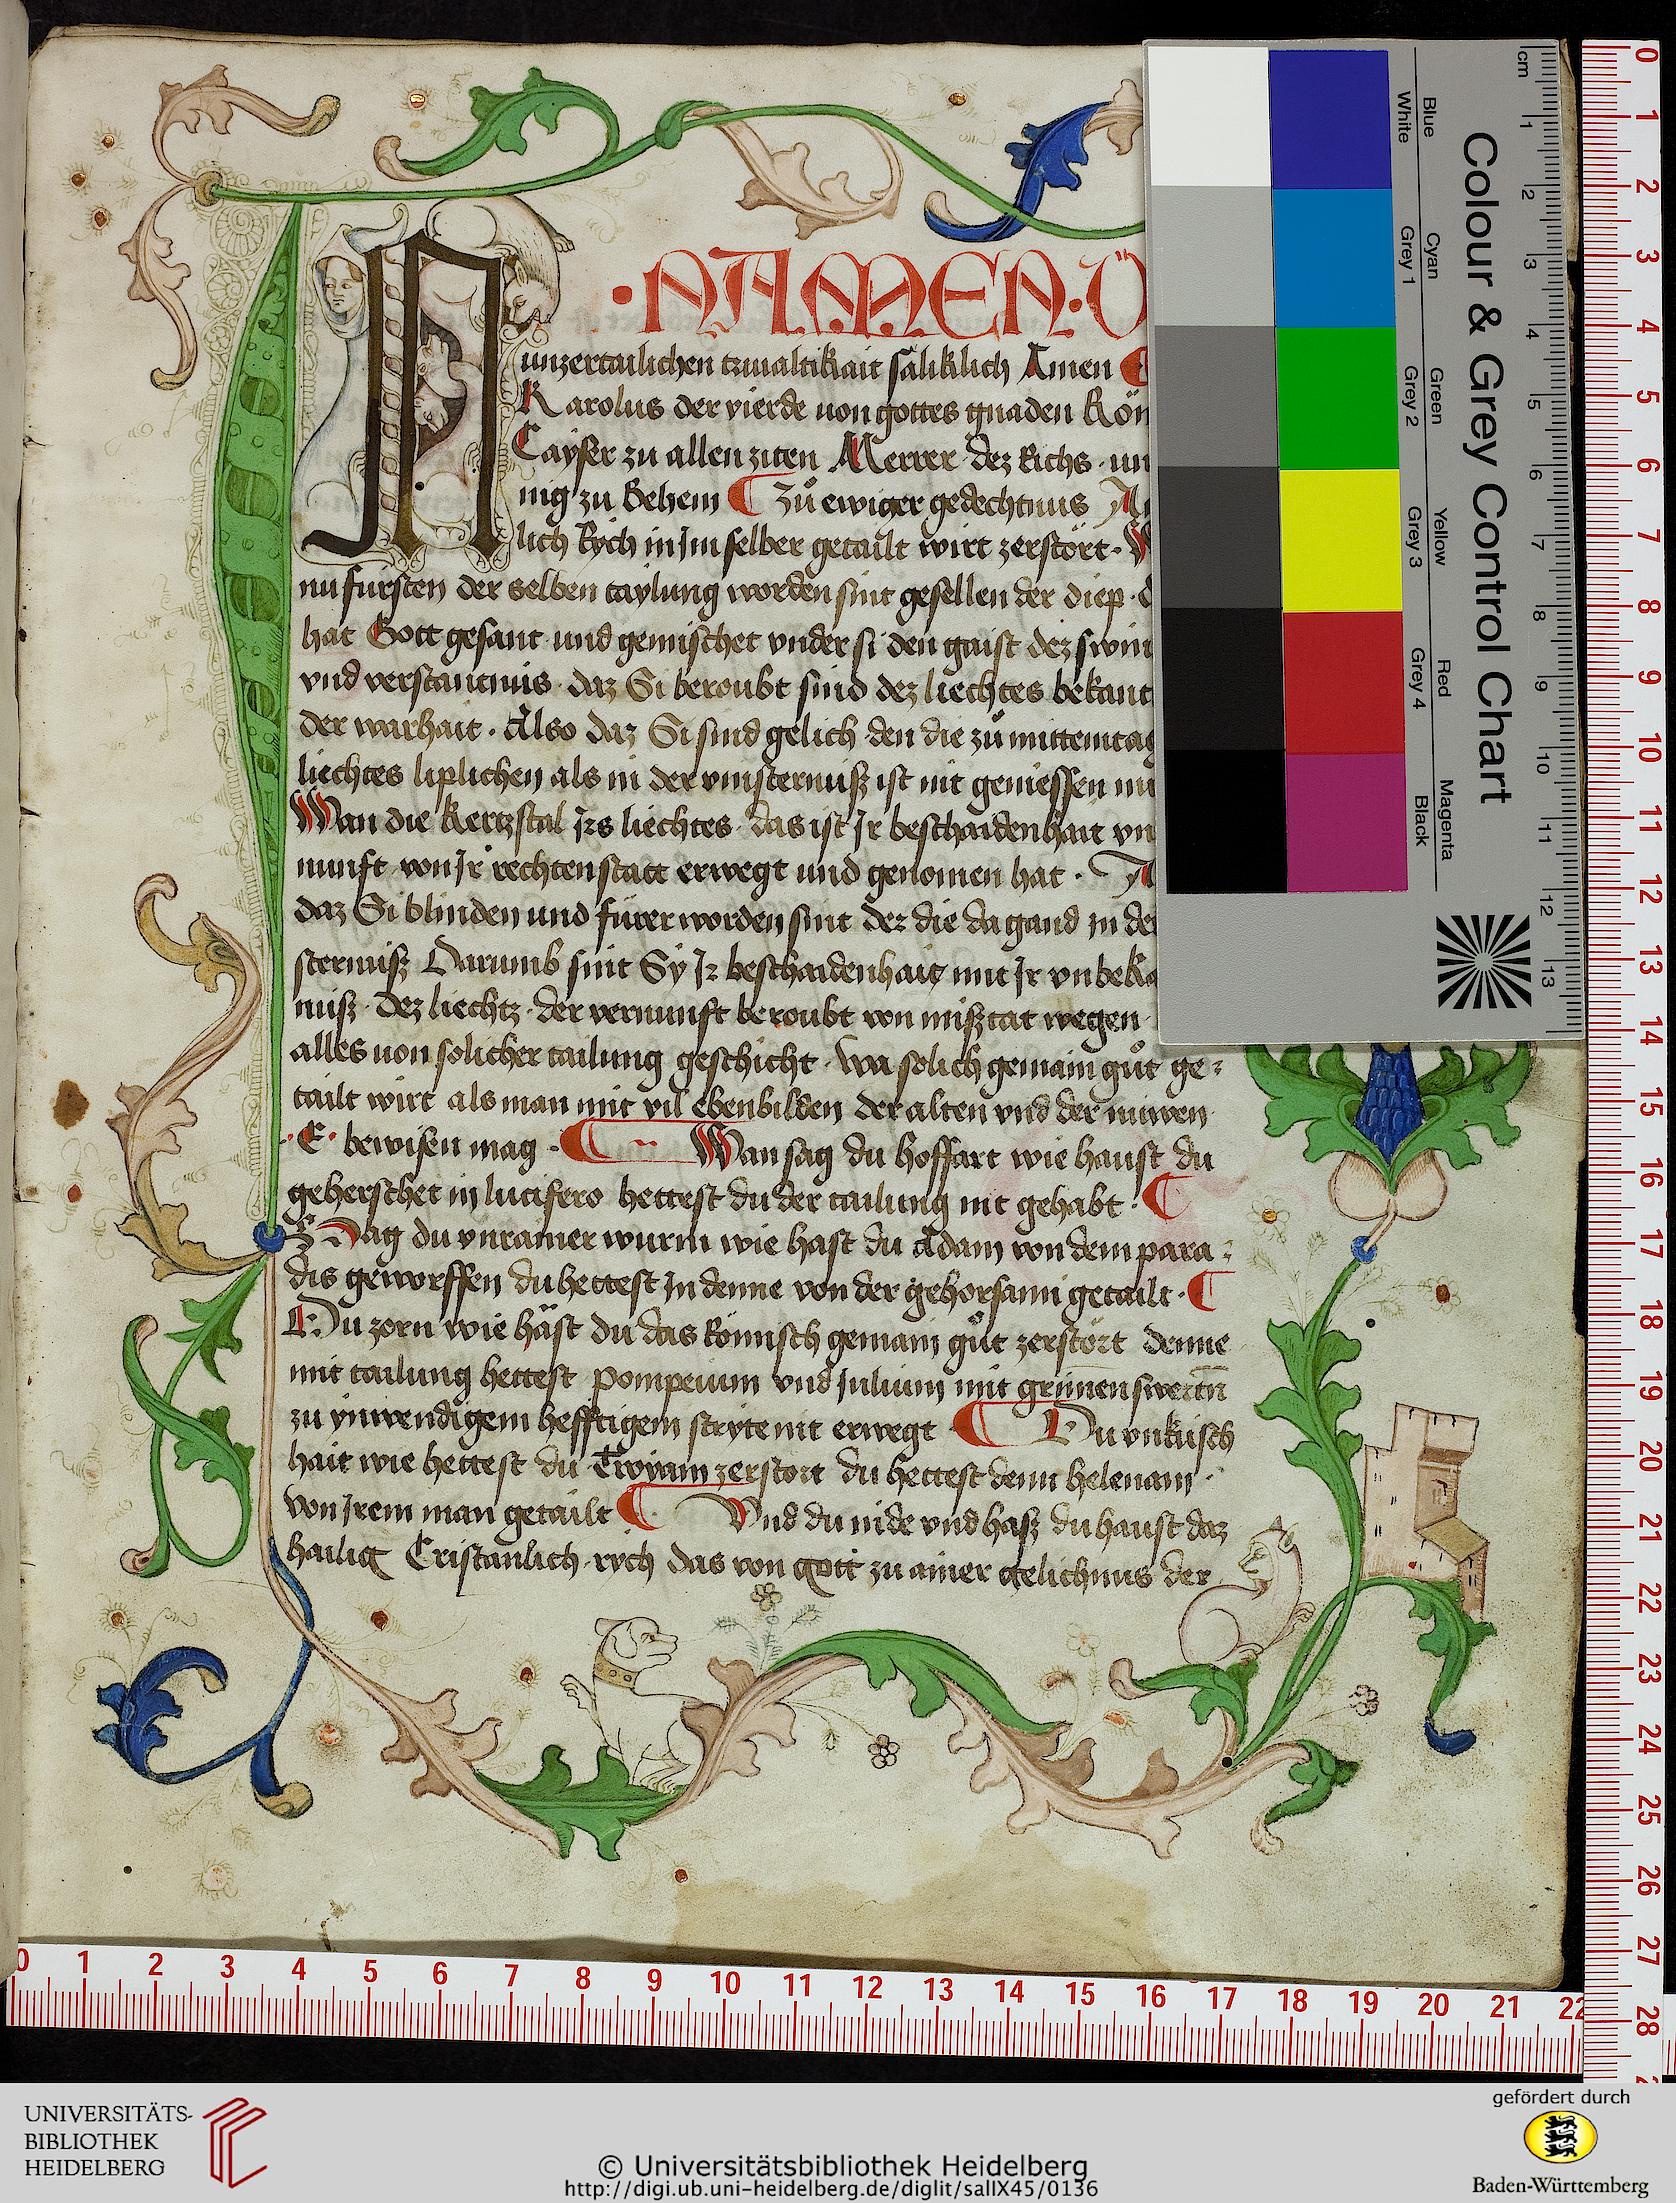 IN
·NAMEN·D
unzertailichen tzwualtikait säliklich Amen
Karolus der vierde uon gottes gnaden Röm
Cayser zu allen ziten Merrer dez Richs · un
nig zu Behem Zů ewiger gedechtnus
lich Rych in Im selber getailt wirt zerstört ·
nu fürsten der selben taylung worden sint gesellen der diep ·
hat Gott gesant und gemischet vnder si den gaist dez swin
vnd verstantnus · daz Si beroubt sind dez liechtes bekant
der warhait · Also daz Si sind gelich den die zů mittemtag
liechtes liplichen als in der vinsternuß ist nit geniessen
Wan die Kertzstal Irs liechtes · das ist Ir beschaidenhait vn
nunft von Ir rechten statt erwegt und genomen hat ·
daz Si blinden und fürer worden sint der die da gand in de
sternuß Darumb sint Sy Ir beschaidenhait mit Ir vnbeka
nuß · dez liechtz · der vernunft beroubt von mißtat wegen
alles uon solicher tailung geschicht · wa solich gemain gůt ge:
tailt wirt als man mit vil ebenbilden der alten vnd der niuwen
· E · bewisen mag · Wan sag du hoffart wie haust du
geherschet in lucifero hettest du der tailung nit gehabt ·
Sag du vnrainer wurm wie hast du Adam von dem para:
dis geworffen du hettest In denne von der gehorsami getailt ·
Du zorn wie häst du das Römisch gemain gůt zerstört denne
mit tailung hettest pompeium vnd Julium mit grimen swertn
zu ynwendigem hefftigem stryte nit erwegt Du vnküsch
hait wie hettest du Troyam zerstört du hettest denn helenam ·
von Irem man getailt Vnd du nide vnd hasz du haust daz
hailig Cristanlich rych das von gott zu ainer gelichnus der
Colour & Grey Control Chart
Blue Cyan Green Yellow Red Magenta
White Grey 1 Grey 2 Grey 3 Grey 4 Black
cm 1 2 3 4 5 6 7 8 9 10 11 12 13
0 1 2 3 4 5 6 7 8 9 10 11 12 13 14 15 16 17 18 19 20 21 22 23 24 25 26 27 28
0 1 2 3 4 5 6 7 8 9 10 11 12 13 14 15 16 17 18 19 20 21 22
UNIVERSITÄTS-
BIBLIOTHEK
HEIDELBERG
© Universitätsbibliothek Heidelberg
http://digi.ub.uni-heidelberg.de/diglit/salIX45/0136
gefördert durch
Baden-Württemberg